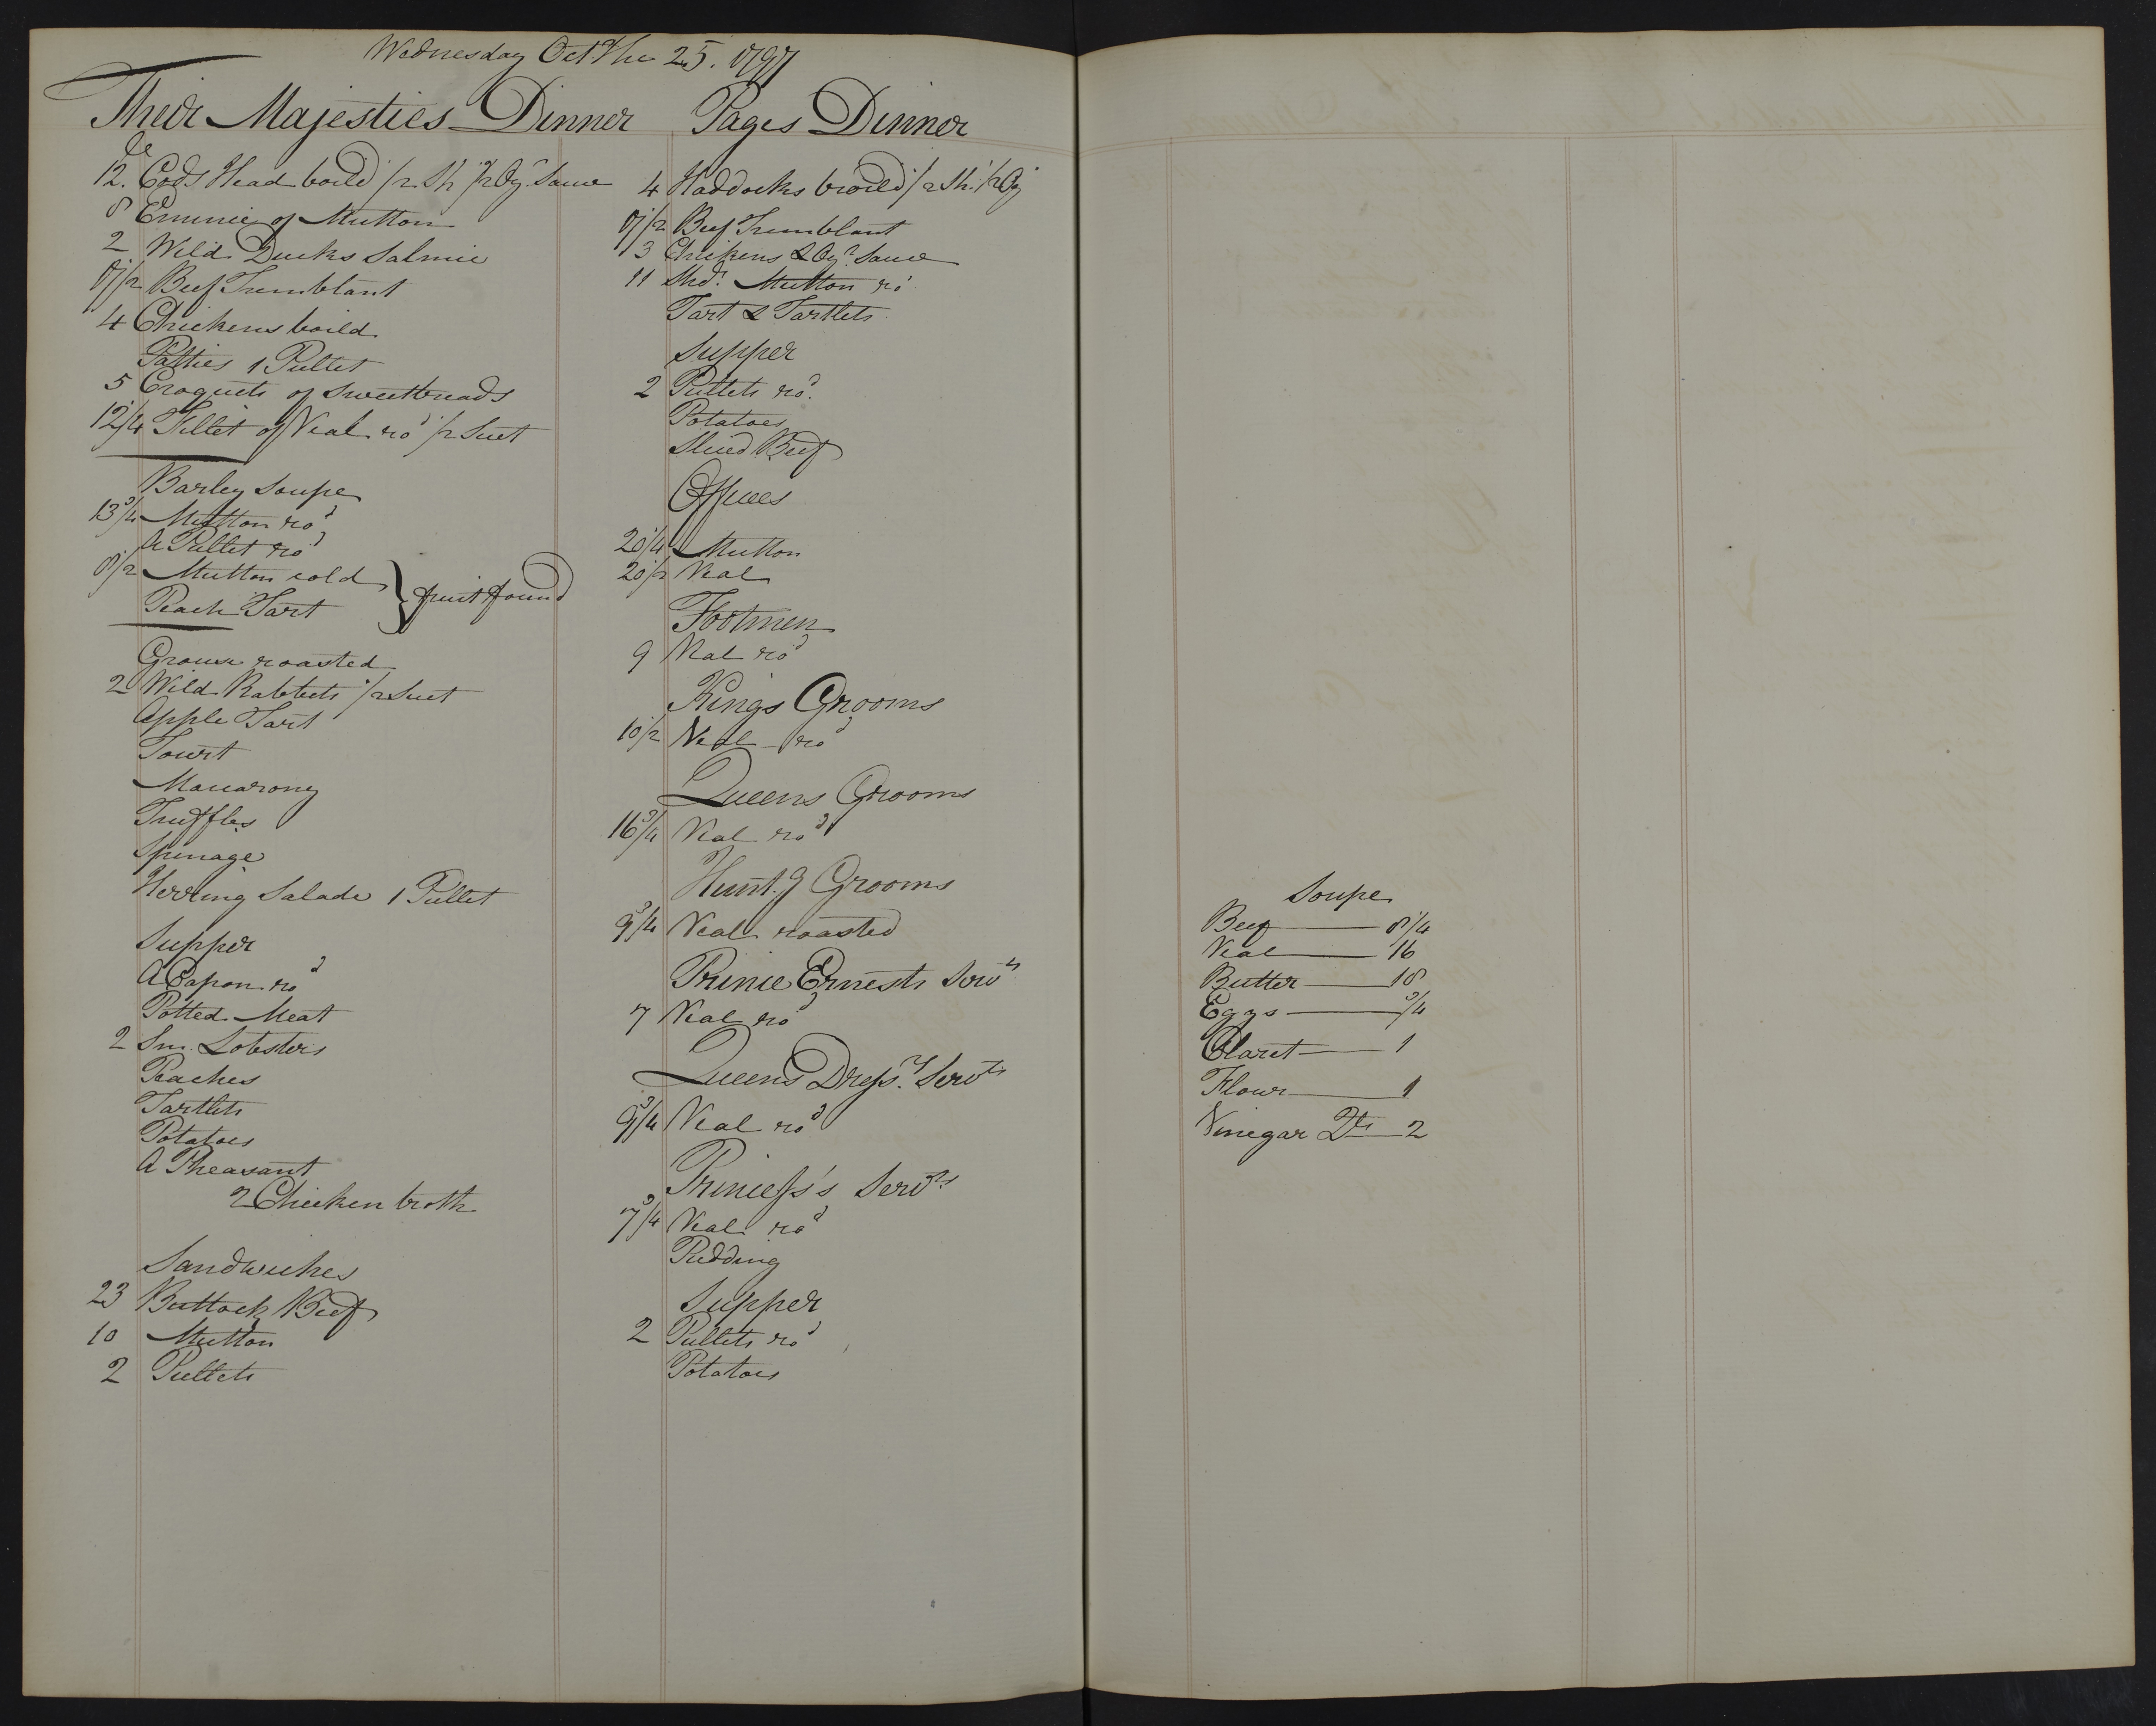 Wednesday Oct the 25. 1797
Their Majesties Dinner
12. Cods Head boild 1/2 Sh 1/2 Oyr Sauce
8 Emmie of Mutton
2 Wild Ducks Salmie
7 1/2 Beef Tremblant
4 Chickens boild
Patties 1 Pullet
5 Croquets of Sweetbreads
12 1/4 Fillet of Veal rod 1/2 Suet
Barley Soupe
13 3/4 Mutton rod
A Pullet rod
8 1/2 Mutton cold } fruit found
Peach Tart
Grouse roasted
2 Wild Rabbets 1/2 Suet
Apple Tart
Tourt
Macarony
Truffles
Spinage
Herring Salade 1 Pullet
Supper
A Capon rod
Potted Meat
2 Sm. Lobsters
Peaches
Tartlets
Potatoes
A Pheasant
2 Chicken broth
Sandwiches
23 Buttock Beef
10 Mutton
2 Pullets
Pages Dinner
4 Haddocks broild 1/2 Sh. 1/2 Oy
7 1/2 Beef Tremblant
3 Chikens & Oyr. Sauce
11 Shd. Mutton rod
Tart & Tartlets
Supper
2 Pullets rod.
Potatoes
Slised Beef
Offices
20 1/4 Mutton
20 1/2 Veal
Footmen
9 Veal rod
Kings Grooms
10 1/2 Veal rod
Queens Grooms
16 3/4 Veal rod
Hunt.g Grooms
9 3/4 Veal roasted
Prince Ernests Servts
7 Veal rod
Queens Dress.rs Servts
9 3/4 Veal rod
Princess's Servts
7 3/4 Veal rod
Pudding
Supper
2 Pullets rod
Potatoes
Soupe
Beef 8 1/4
Veal 16
Butter 18
Eggs 3/4
Claret 1
Flour 1
Vinegar Qts 2